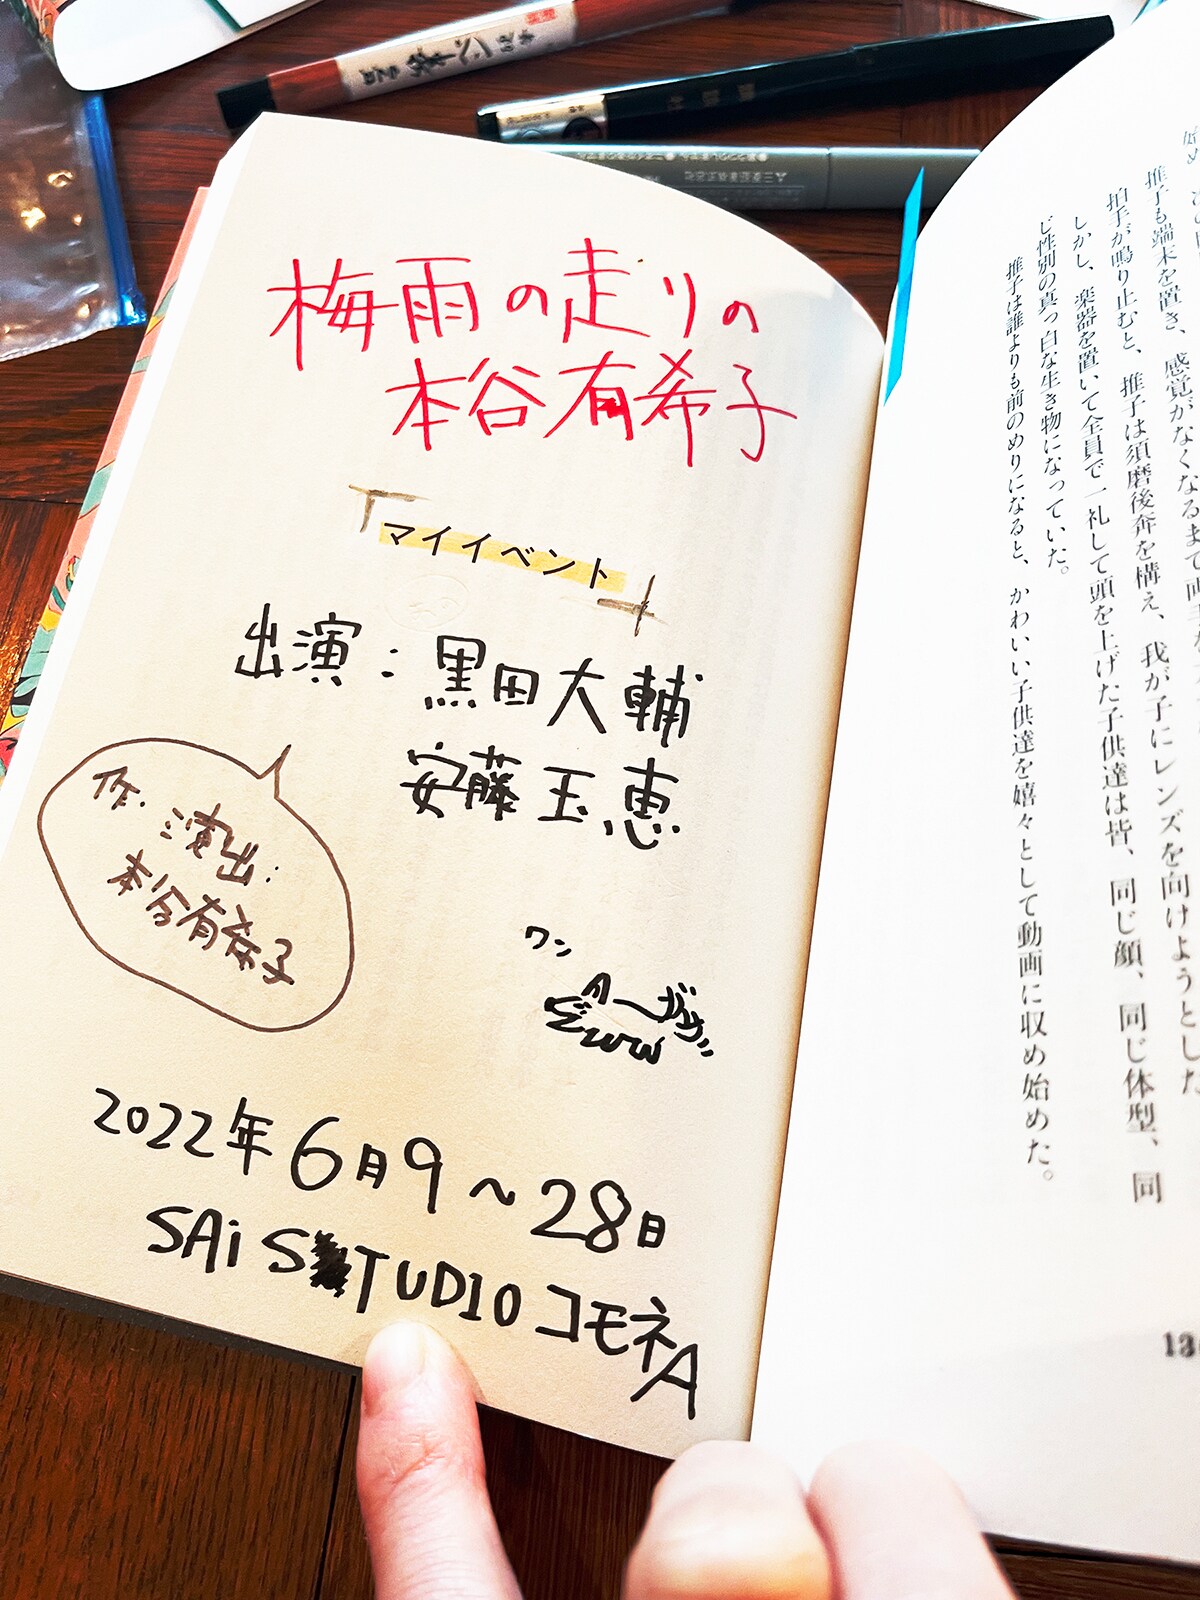 梅雨の走りの
本谷有希子
「マイイベント」
出演:黒田大輔
安藤玉恵
作・演出:
本谷有希子
ワン
2022年6月9〜28日
SAi STUDIO コモネA
推子も端末を置き、感覚がなくなるまで両手を
拍手が鳴り止むと、推子は須磨後奔を構え、我が子にレンズを向けようとした
しかし、楽器を置いて全員で一礼して頭を上げた子供達は皆、同じ顔、同じ体型、同
じ性別の真っ白な生き物になっていた。
推子は誰よりも前のめりになると、かわいい子供達を嬉々として動画に収め始めた。